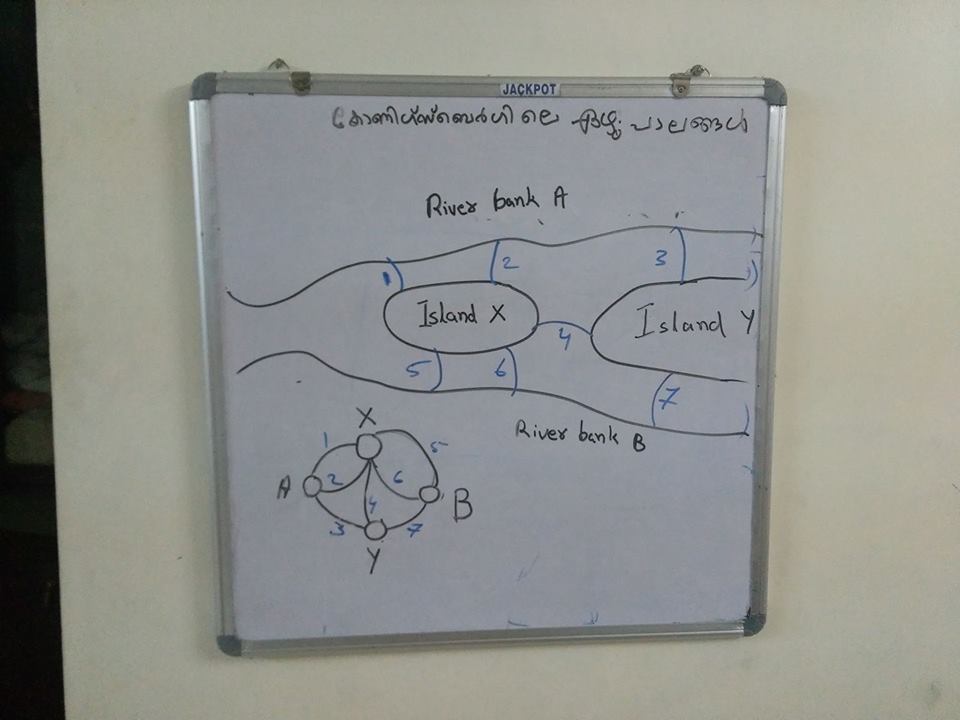 JACKPOT
കോണിഗ്സ്ബെർഗിലെ ഏഴു പാലങ്ങൾ
River bank A
1 2 3
Island X
Island Y
4
5 6 7
River bank B
X
1 5
A 2 6 B
4
3 7
Y